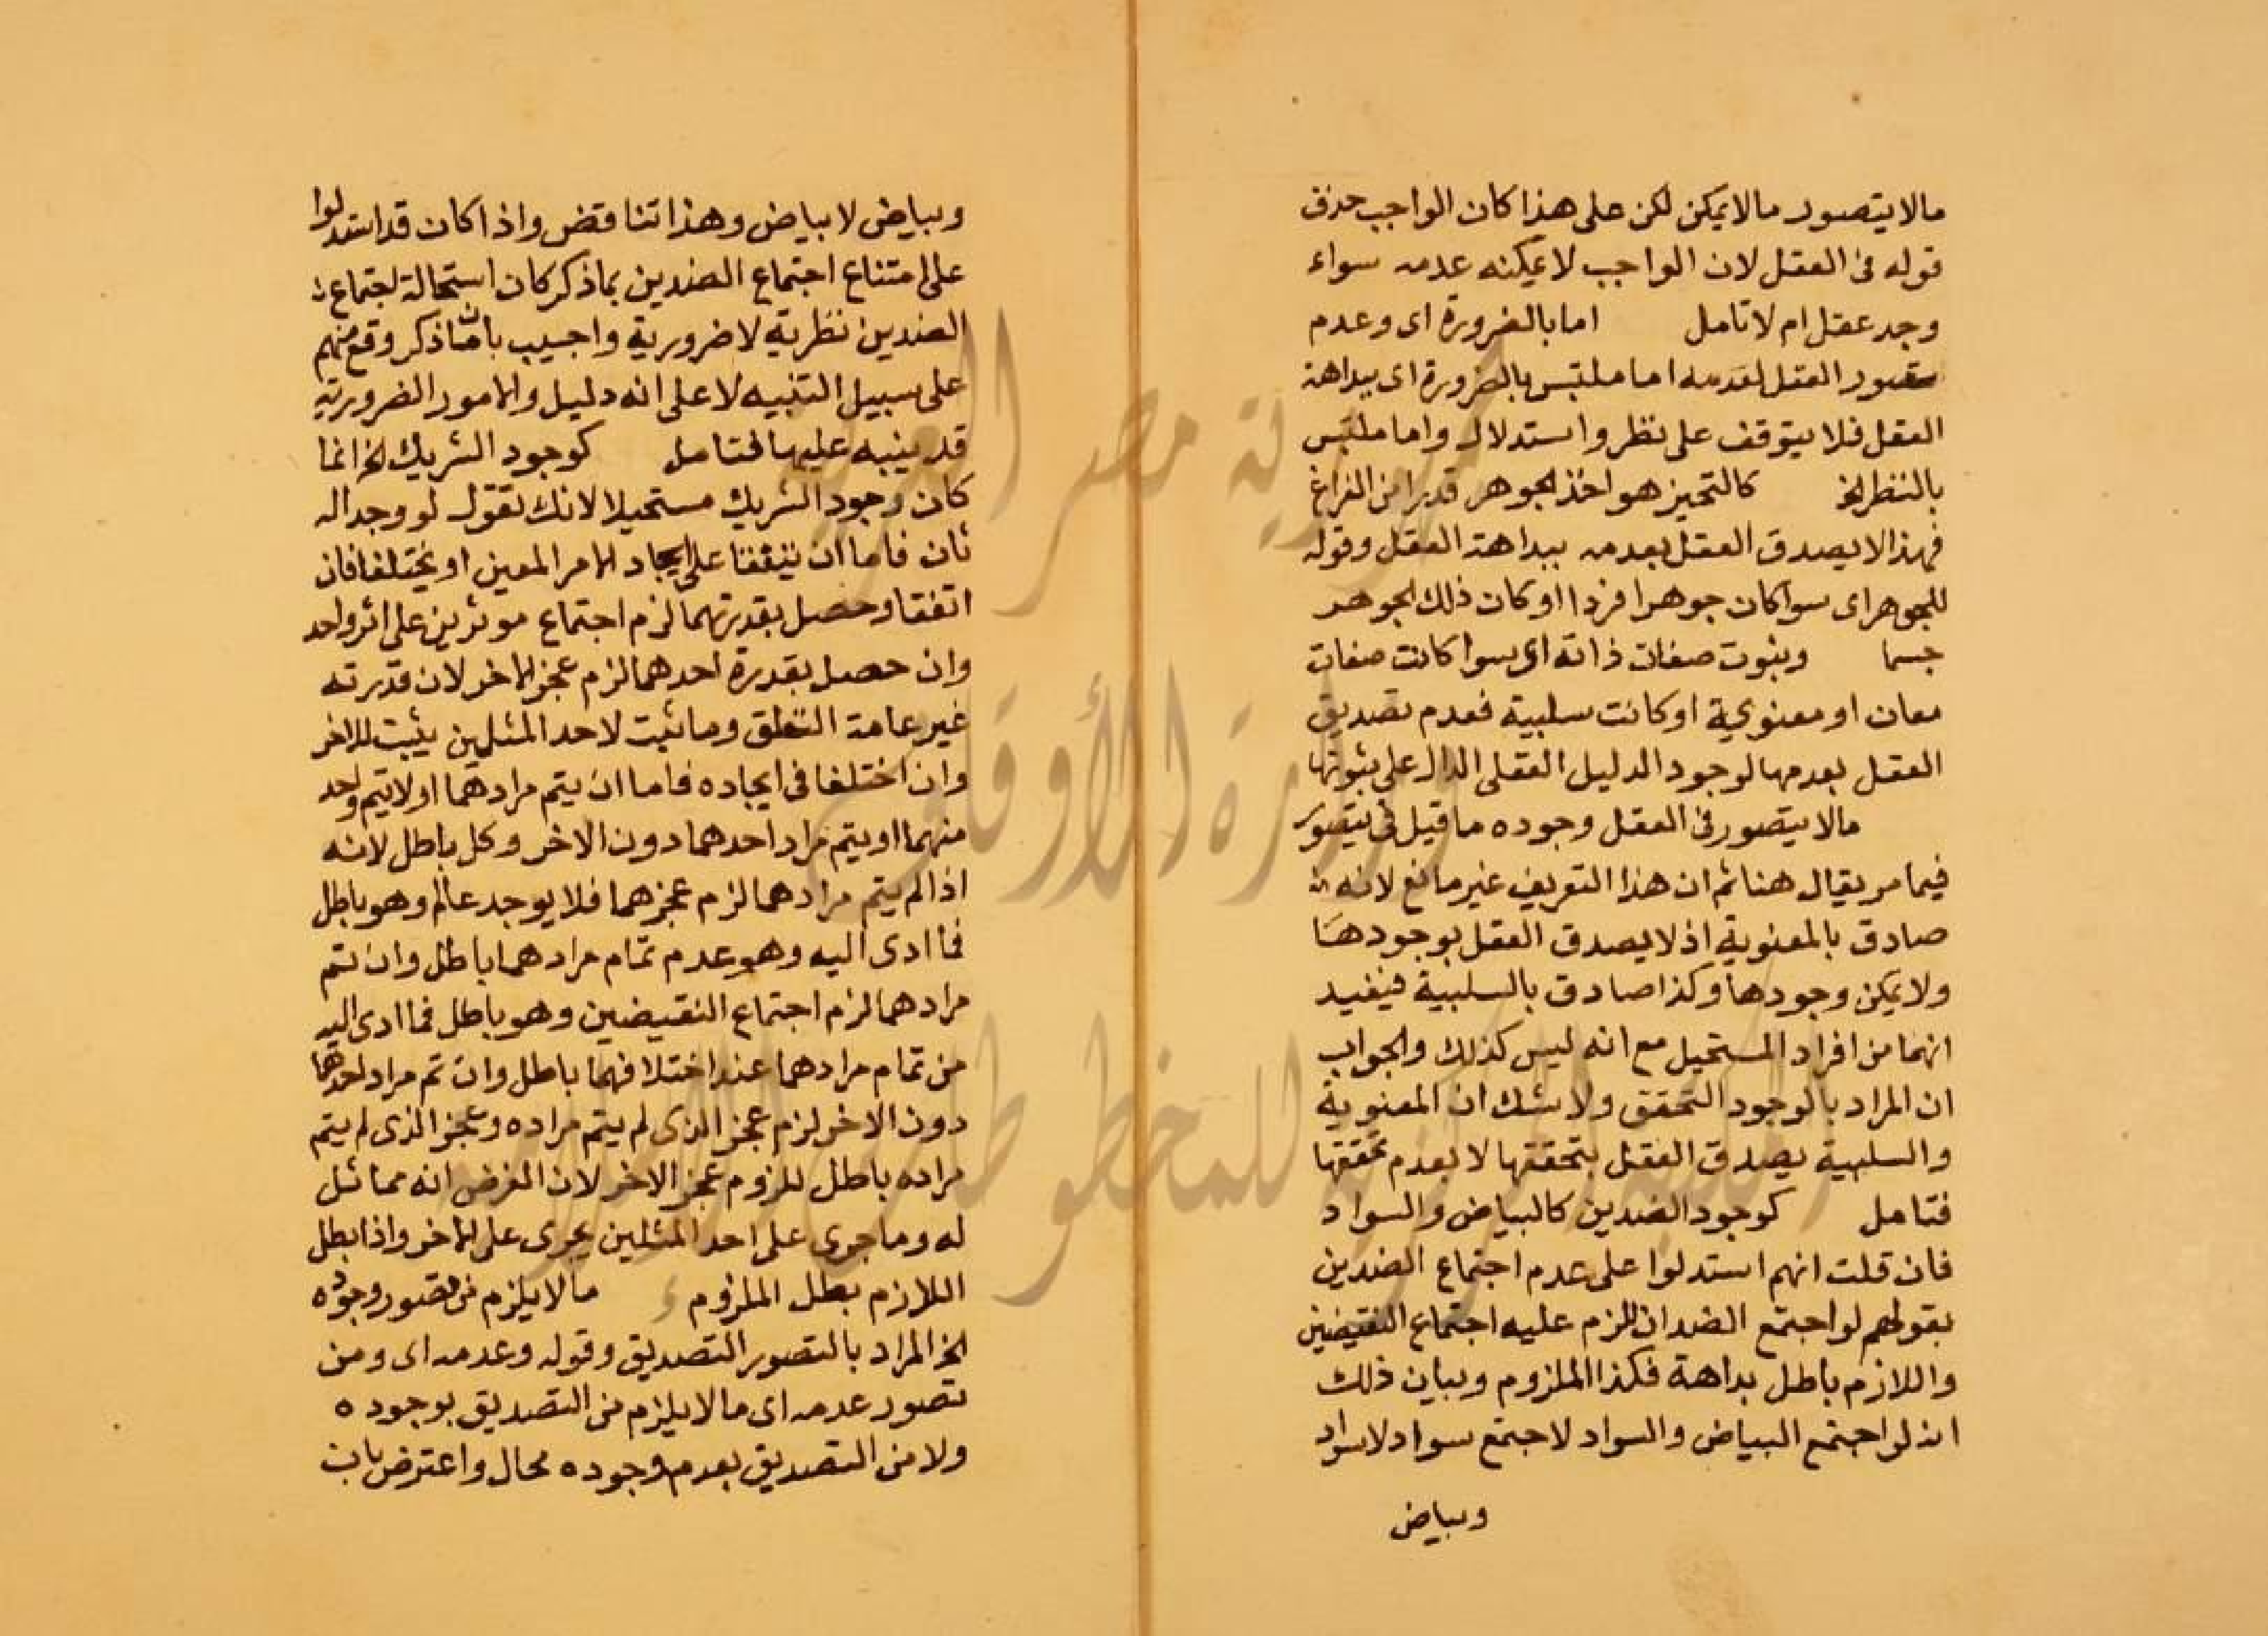 مالايتصور مالايمكن لكن على هذا كان الواجب حذف
قوله فى العقل لان الواجب لا يمكنه عدمه سواء
وجد عقل ام لا تامل اما بالضرورة اى وعدم
تصور العقل لعدمه اما ملتبس بالضرورة اى ببداهة
العقل فلا يتوقف على نظر واستدلال واما ملتبس
بالنظر الخ كالتحيز هو اخذ الجوهر قدرا من الفراغ
فهذا لا يصدق العقل بعدمه ببداهة العقل وقوله
للجوهر اى سوا كان جوهرا فردا او كان ذلك الجوهر
جسما وثبوت صفات ذاته اى سوا كانت صفات
معان او معنوية او كانت سلبية فعدم تصديق
العقل بعدمها لوجود الدليل العقلى الدال على ثبوتها
مالا يتصور فى العقل وجوده ما قيل فى يتصور
فيما مر يقال هنا ثم ان هذا التعريف غير مانع لانه
صادق بالمعنوية اذ لا يصدق العقل بوجودها
ولا يمكن وجودها وكذا صادق بالسلبية فيفيد
انهما من افراد المستحيل مع انه ليس كذلك والجواب
ان المراد بالوجود التحقق ولا شك ان المعنوية
والسلبية يصدق العقل بتحققها لا بعدم تحققها
فتامل كوجود الضدين كالبياض والسواد
فان قلت انهم استدلوا على عدم اجتماع الضدين
بقولهم لو اجتمع الضدان للزم عليه اجتماع النقيضين
واللازم باطل بداهة فكذا الملزوم وبيان ذلك
انه لو اجتمع البياض والسواد لاجتمع سواد لا سواد
وبياض
وبياض لا بياض وهذا تناقض واذا كان قد استدلوا
على امتناع اجتماع الضدين بما ذكر كان استحالة اجتماع
الضدين نظرية لا ضرورية واجيب بان ما ذكر وقع منهم
على سبيل التنبيه لا على انه دليل والامور الضرورية
قد ينبه عليها فتامل كوجود الشريك الخ انما
كان وجود الشريك مستحيلا لانك تقول لو وجد اله
ثان فاما ان يتفقا على ايجاد الامر المعين او يختلفا فان
اتفقا وحصل بقدرتهما لزم اجتماع موثرين على اثر واحد
وان حصل بقدرة احدهما لزم عجز الاخر لان قدرته
غير عامة التعلق وما ثبت لاحد المثلين يثبت للاخر
وان اختلفا فى ايجاده فاما ان يتم مرادهما او لا يتم واحد
منهما او يتم مراد احدهما دون الاخر وكل باطل لانه
اذا لم يتم مرادهما لزم عجزهما فلا يوجد عالم وهو باطل
فما ادى اليه وهو عدم تمام مرادهما باطل وان تم
مرادهما لزم اجتماع النقيضين وهو باطل فما ادى اليه
من تمام مرادهما عند اختلافهما باطل وان تم مراد احدهما
دون الاخر لزم عجز الذى لم يتم مراده وعجز الذى لم يتم
مراده باطل للزوم عجز الاخر لان الفرض انه مماثل
له وما جرى على احد المثلين يجرى على الاخر واذا بطل
اللازم بطل الملزوم مالا يلزم من تصور وجوده
الخ المراد بالتصور التصديق وقوله وعدمه اى ومن
تصور عدمه اى مالا يلزم من التصديق بوجوده
ولا من التصديق بعدم وجوده محال واعترض بان
جمهورية مصر العربية
وزارة الأوقاف
المكتبة المركزية للمخطوطات الإسلامية